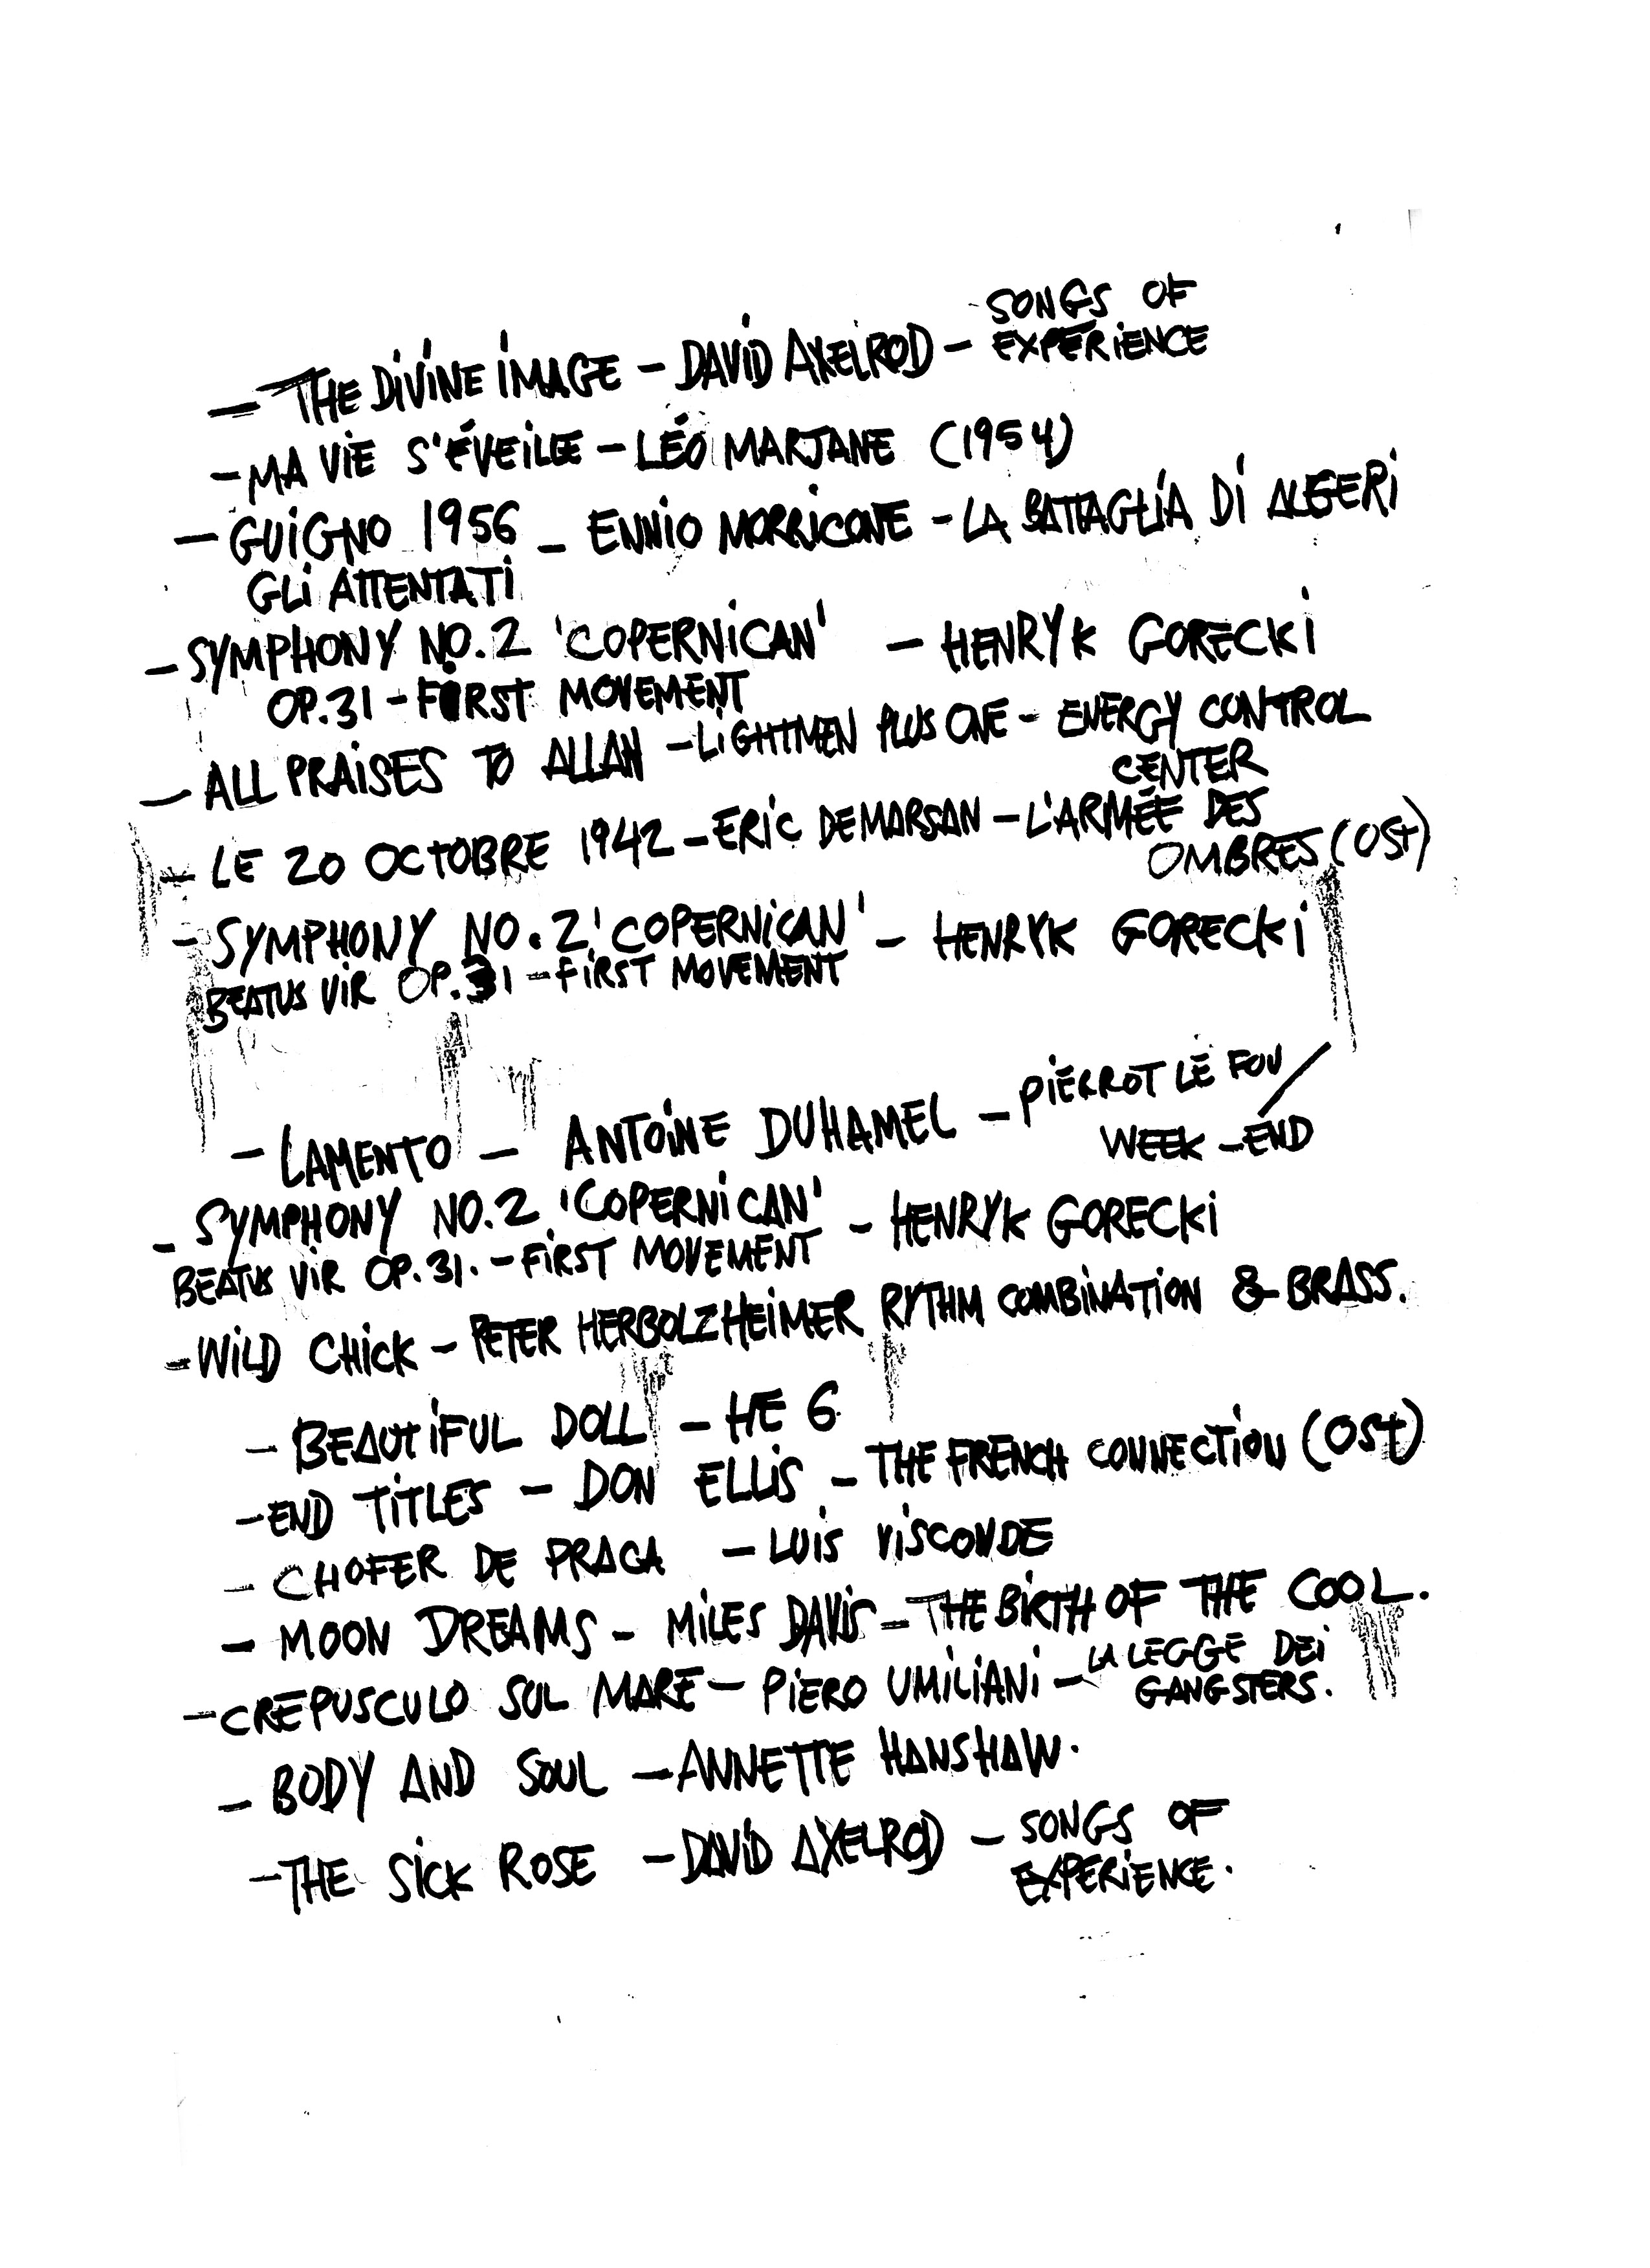 SONGS OF
— THE DIVINE IMAGE — DAVID AXELROD — EXPERIENCE
- MA VIE S'ÉVEILLE — LÉO MARJANE (1954)
— GUIGNO 1956 — ENNIO MORRICONE - LA BATTAGLIA DI ALGERI
GLI ATTENTATI
- SYMPHONY NO.2 'COPERNICAN' — HENRYK GORECKI
OP.31 - FIRST MOVEMENT
— ALL PRAISES TO ALLAH — LIGHTMEN PLUS ONE - ENERGY CONTROL
CENTER
- LE 20 OCTOBRE 1942 - ERIC DEMARSAN - L'ARMÉE DES
OMBRES (OST)
- SYMPHONY NO.2 'COPERNICAN' - HENRYK GORECKI
BEATUS VIR OP.31 - FIRST MOVEMENT
- LAMENTO — ANTOINE DUHAMEL - PIERROT LE FOU /
WEEK - END
- SYMPHONY NO.2 'COPERNICAN' - HENRYK GORECKI
BEATUS VIR OP.31. - FIRST MOVEMENT
- WILD CHICK - PETER HERBOLZHEIMER RYTHM COMBINATION & BRASS.
- BEAUTIFUL DOLL - HE 6
- END TITLES - DON ELLIS - THE FRENCH CONNECTION (OST)
- CHOFER DE PRACA - LUIS VISCONDE
- MOON DREAMS - MILES DAVIS - THE BIRTH OF THE COOL.
- CREPUSCULO SUL MARE - PIERO UMILIANI - LA LEGGE DEI
GANGSTERS.
- BODY AND SOUL - ANNETTE HANSHAW.
- THE SICK ROSE - DAVID AXELROD - SONGS OF
EXPERIENCE.